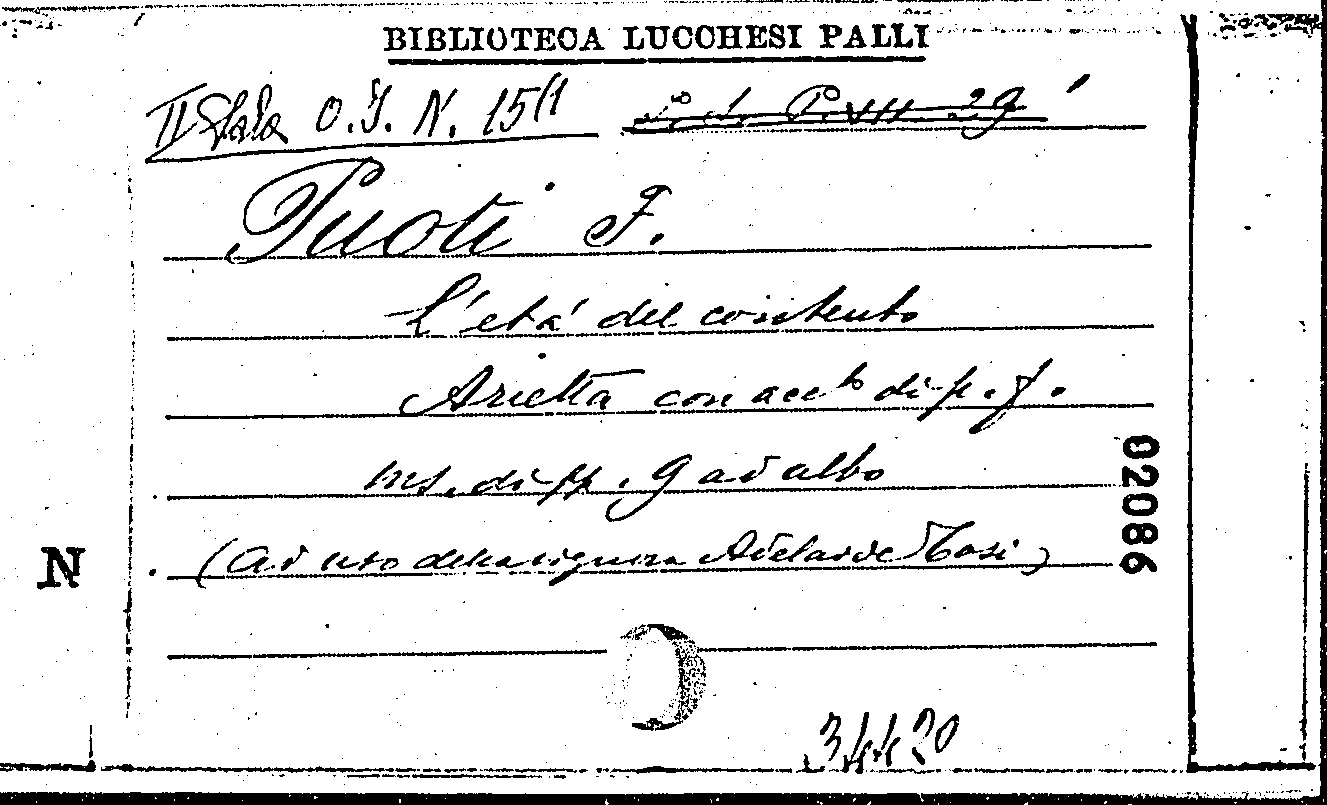 BIBLIOTECA LUCCHESI PALLI
II Sala O.I. N. 15(1 P.VII 29
Puoti F.
L'età del contento
Arietta con acc.to di p.f.
ms. di pp. 9 ad albo
(ad uso della signora Adelaide Tosi)
02086
N
34420